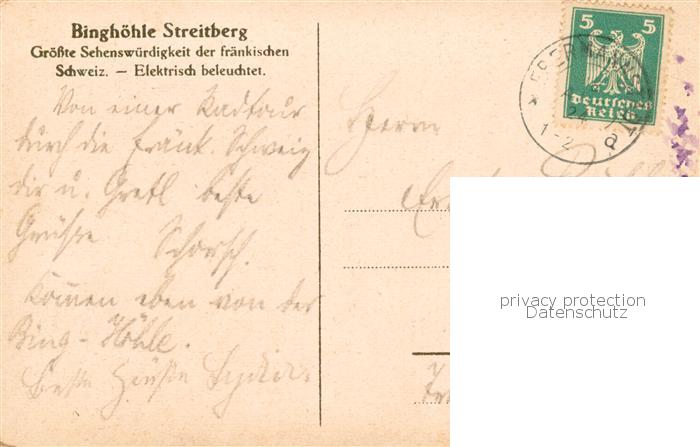 Binghöhle Streitberg
Größte Sehenswürdigkeit der fränkischen
Schweiz. — Elektrisch beleuchtet.
5 5
Deutsches
Reich
1-2
Von einer Radtour
durch die Fränk. Schweiz
dir u. Gretl beste
Grüße Schorsch.
Kommen eben von der
Bing-Höhle.
Beste Grüße Lydia.
Herrn
privacy protection
Datenschutz